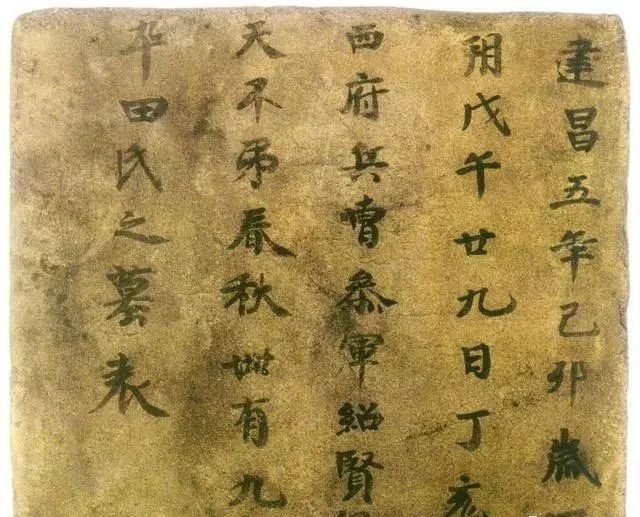 建昌五年己卯歲
朔戊午廿九日丁亥
西府兵曹叅軍紹賢
天不弔春秋卌有九
田氏之墓表